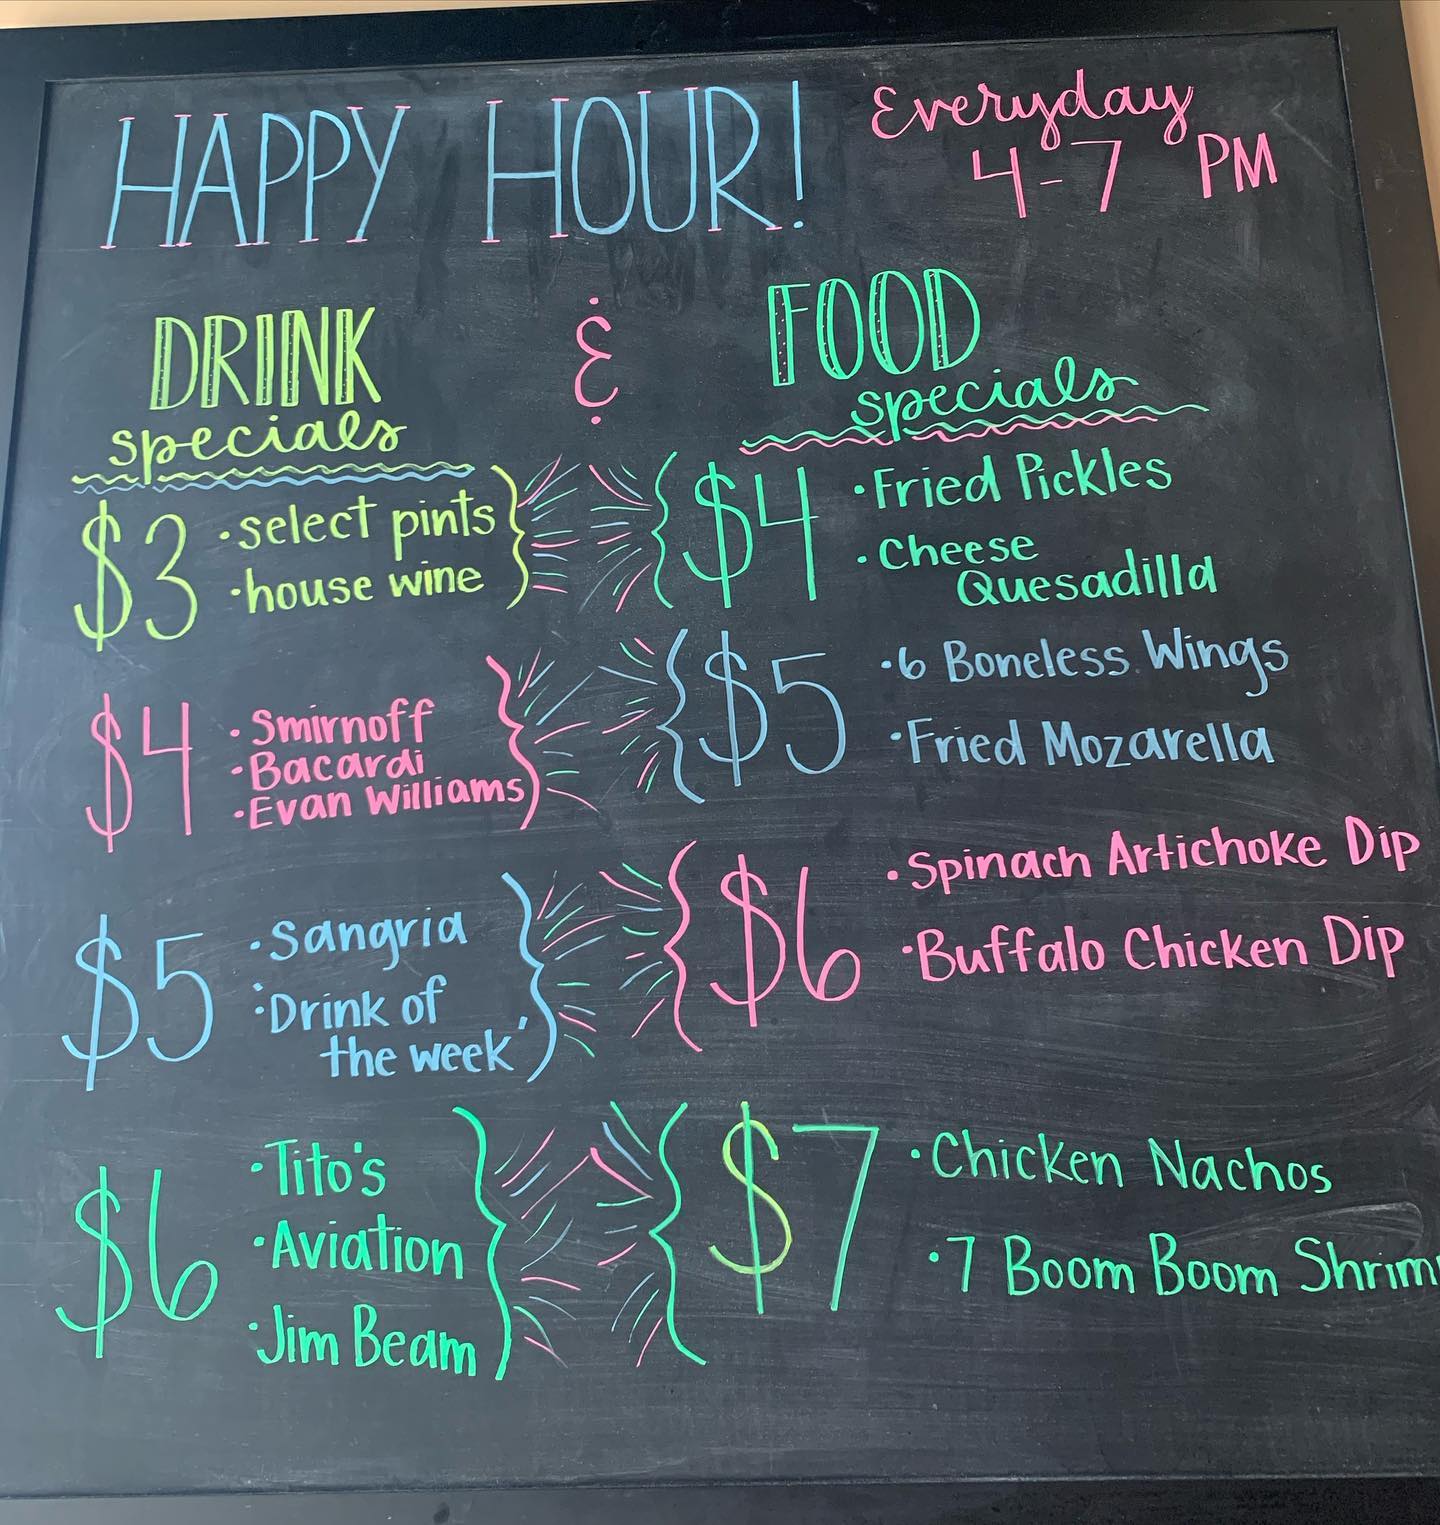 HAPPY HOUR!
Everyday
4-7 PM
DRINK
specials
&
FOOD
specials
$3
·select pints
·house wine
$4
·Smirnoff
·Bacardi
·Evan Williams
$5
·Sangria
·Drink of
the week'
$6
·Tito's
·Aviation
·Jim Beam
$4
·Fried Pickles
·Cheese
Quesadilla
$5
·6 Boneless Wings
·Fried Mozarella
$6
·Spinach Artichoke Dip
·Buffalo Chicken Dip
$7
·Chicken Nachos
·7 Boom Boom Shrim